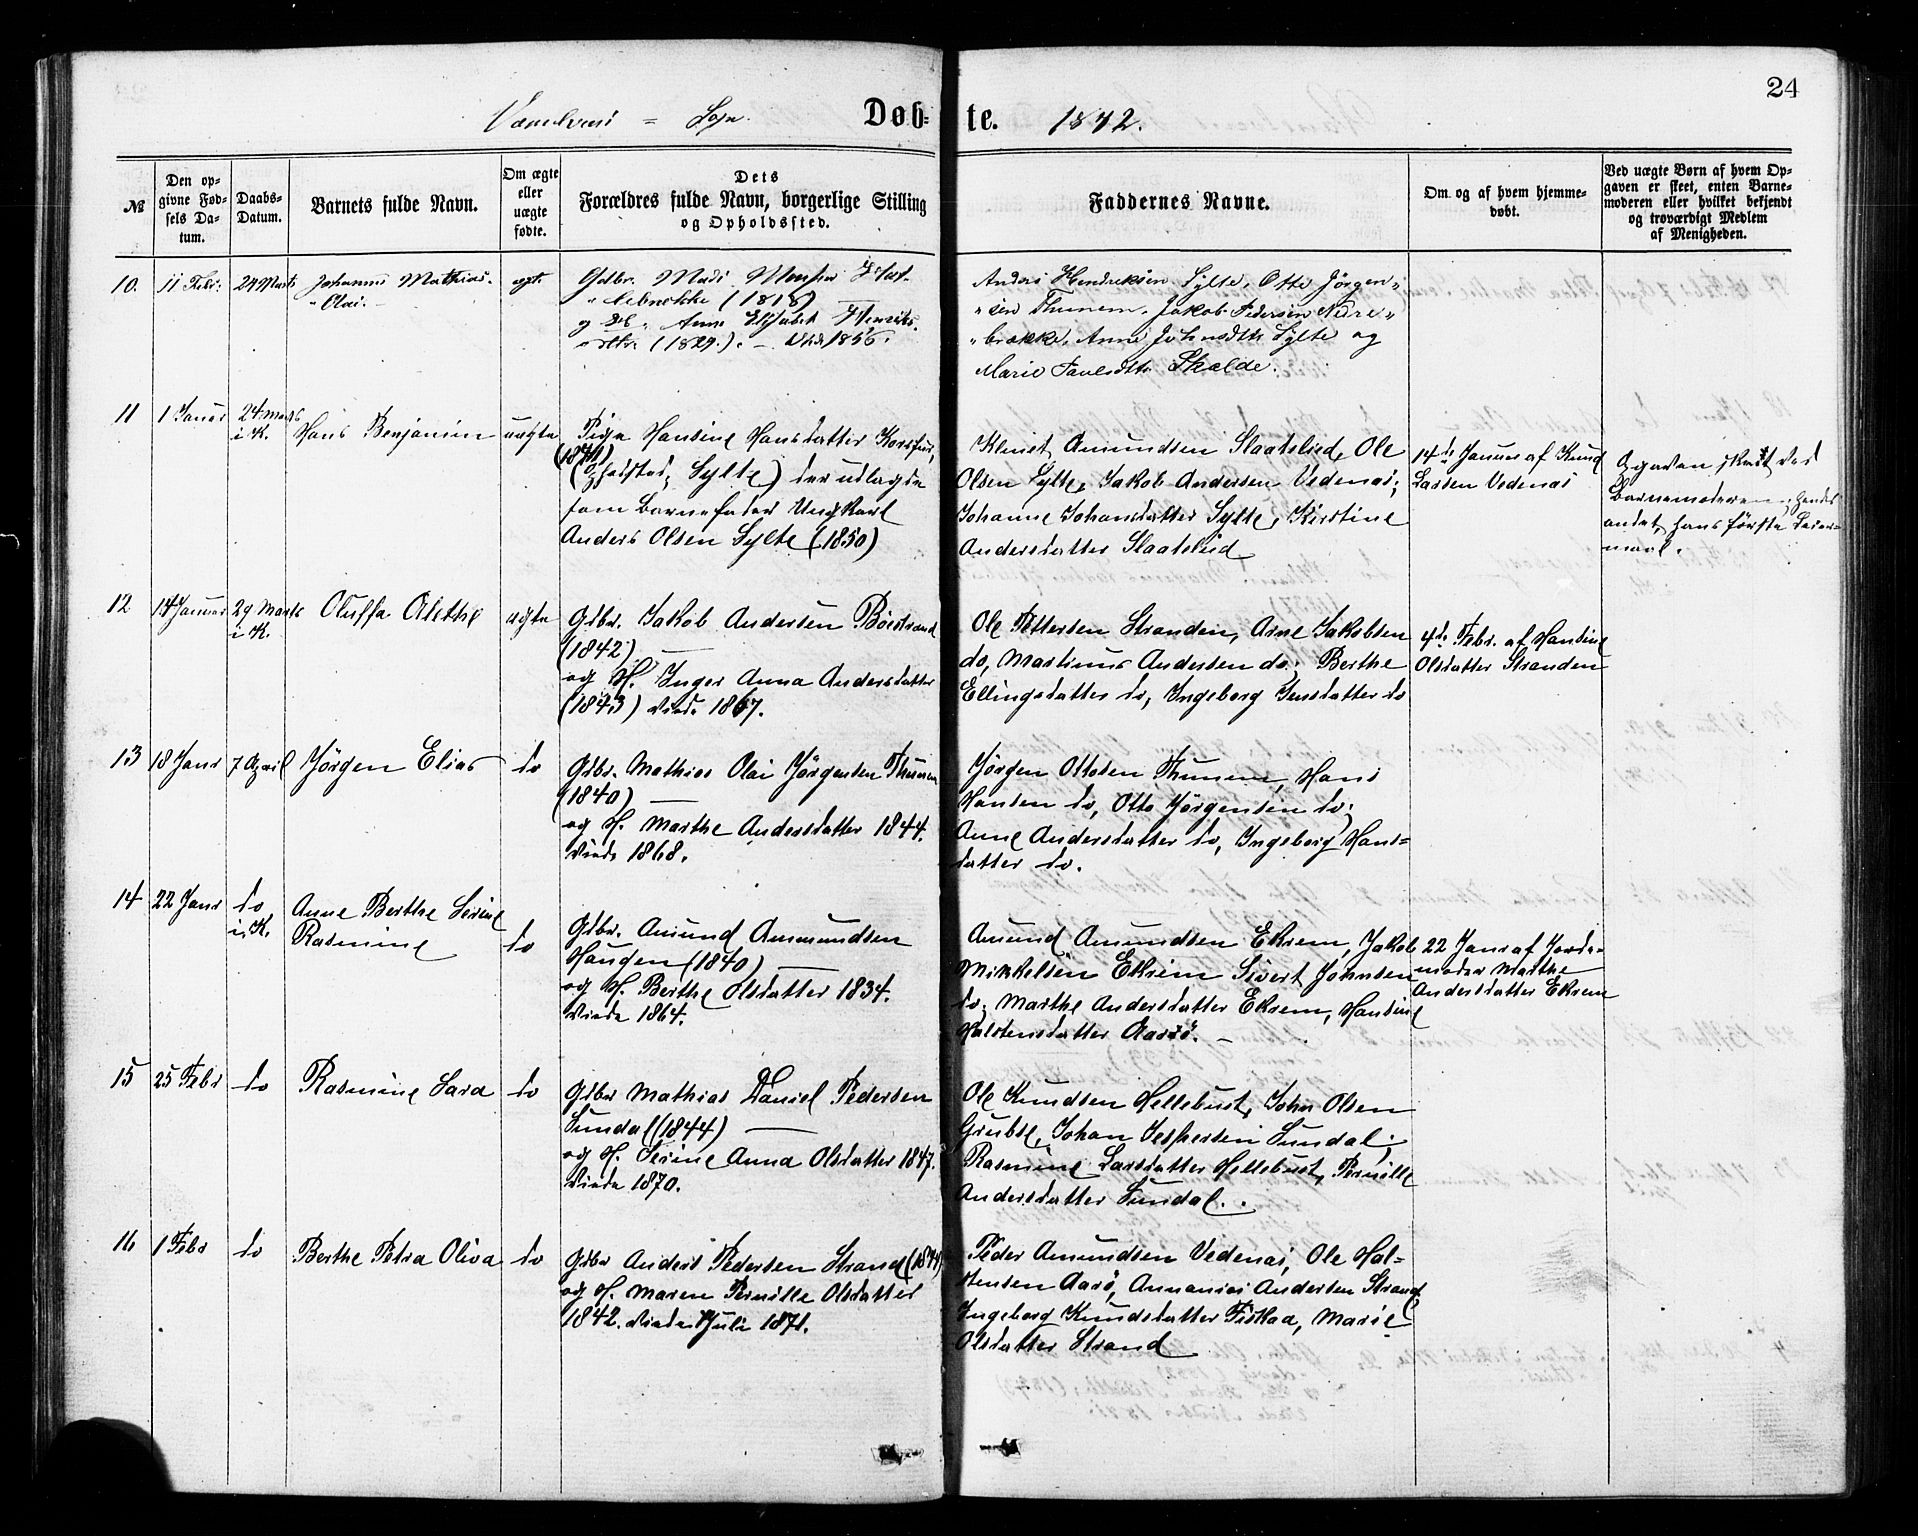 24
Sogn. Døb= te. 1872.
№
Den op=
givne Fød=
sels Da=
tum.
Daabs=
Datum.
Barnets fulde Navn.
Om ægte
eller
uægte
fødte.
Dets
Forældres fulde Navn, borgerlige Stilling
og Opholdssted.
Faddernes Navne.
Om og af hvem hjemme=
døbt.
Ved uægte Børn af hvem Op=
gaven er skeet, enten Barne=
moderen eller hvilket bekjendt
og troværdigt Medlem
af Menigheden.
10.
11 Febr.
24 Marts
Johannes Mathias
Olai.
ægt.
Gdbr. Mads Monsen
(1818)
og Anne Elisabeth Henriks
(1829). 1856.
Anders Hendriksen Sylte, Otto Jörgen
sen Thunem, Jakob Pedersen Nedre
brække, Anne Johnsdtr Sylte og
Marie Paulsdtr Skalde.
11
1 Januar
24 Marts
i K.
Hans Benjamin
uægte
Pige Hansine Hansdatter
(Opholdsted, Sylte) der udlagde
som Barnefader Ungkarl
Anders Olsen Sylte (1850)
Klaus Amundsen Slaatelied, Ole
Olsen Sylte, Jakob Andersen Vedenæs;
Johanne Johansdatter Sylte, Kirstine
Andersdatter Slaatelied
14de Januar af Knud
Larsen Vedenæs
Opgaven skeet ved
Barnemoderen; hendes
andet, hans første Leier=
maal.
12
14 Januar
29 Marts
i K.
Oluffa Alethe
ægte
Gdbr. Jakob Andersen Böestrand
(1842)
og H. Inger Anna Andersdatter
(1843) Viede 1867.
Ole Pettersen Stranden, Arne Jakobsen
do, Martinus Andersen do; Berthe
Ellingsdatter do, Ingeborg Jensdatter do
4de Febr. af Hansine
Olsdatter Stranden
13
18 Janr
7 April
Jörgen Elias
do
Gdbr. Mathias Olai Jörgensen Thunem
(1840)
og H. Marthe Andersdatter 1844.
Viede 1868.
Jörgen Ottosen Thunem, Hans
Hansen do, Otto Jörgensen do;
Anne Andersdatter do, Ingeborg Hans=
datter do.
14
22 Janr
do
i K.
Anne Berthe Serine
Rasmine
do
Gdbr. Amund Ammundsen
Haugen (1840)
og H. Berthe Olsdatter 1834.
Viede 1864.
Amund Amundsen Ekrem, Jakob
Mikkelsen Ekrem Sivert Johnsen
do; Marthe Andersdatter Ekrem, Hansine
Halstensdatter Aarsö. –
22 Janr af Jorde=
moder Marthe
Andersdatter Ekrem
15
25 Febr
do
Rasmine Sara
do
Gdbr Mathias Daniel Pedersen
Sundal (1844)
og H. Serine Anna Olsdatter 1847.
Viede 1870.
Ole Knudsen Hellebust, John Olsen
Grubse, Johan Jespersen Sundal;
Rasmine Larsdatter Hellebust, Pernille
Andersdatter Sundal.
16
1 Febr
do
Berthe Petra Oliva
do
Gdbr Anders Pedersen Strand
og H. Maren Pernille Olsdatter
1842. Viede Juli 1871.
Peder Amundsen Vedenæs, Ole Hal=
stensen Aarö, Annanias Andersen Strand
Ingeborg Knudsdatter Fiskaa, Marie
Olsdatter Strand